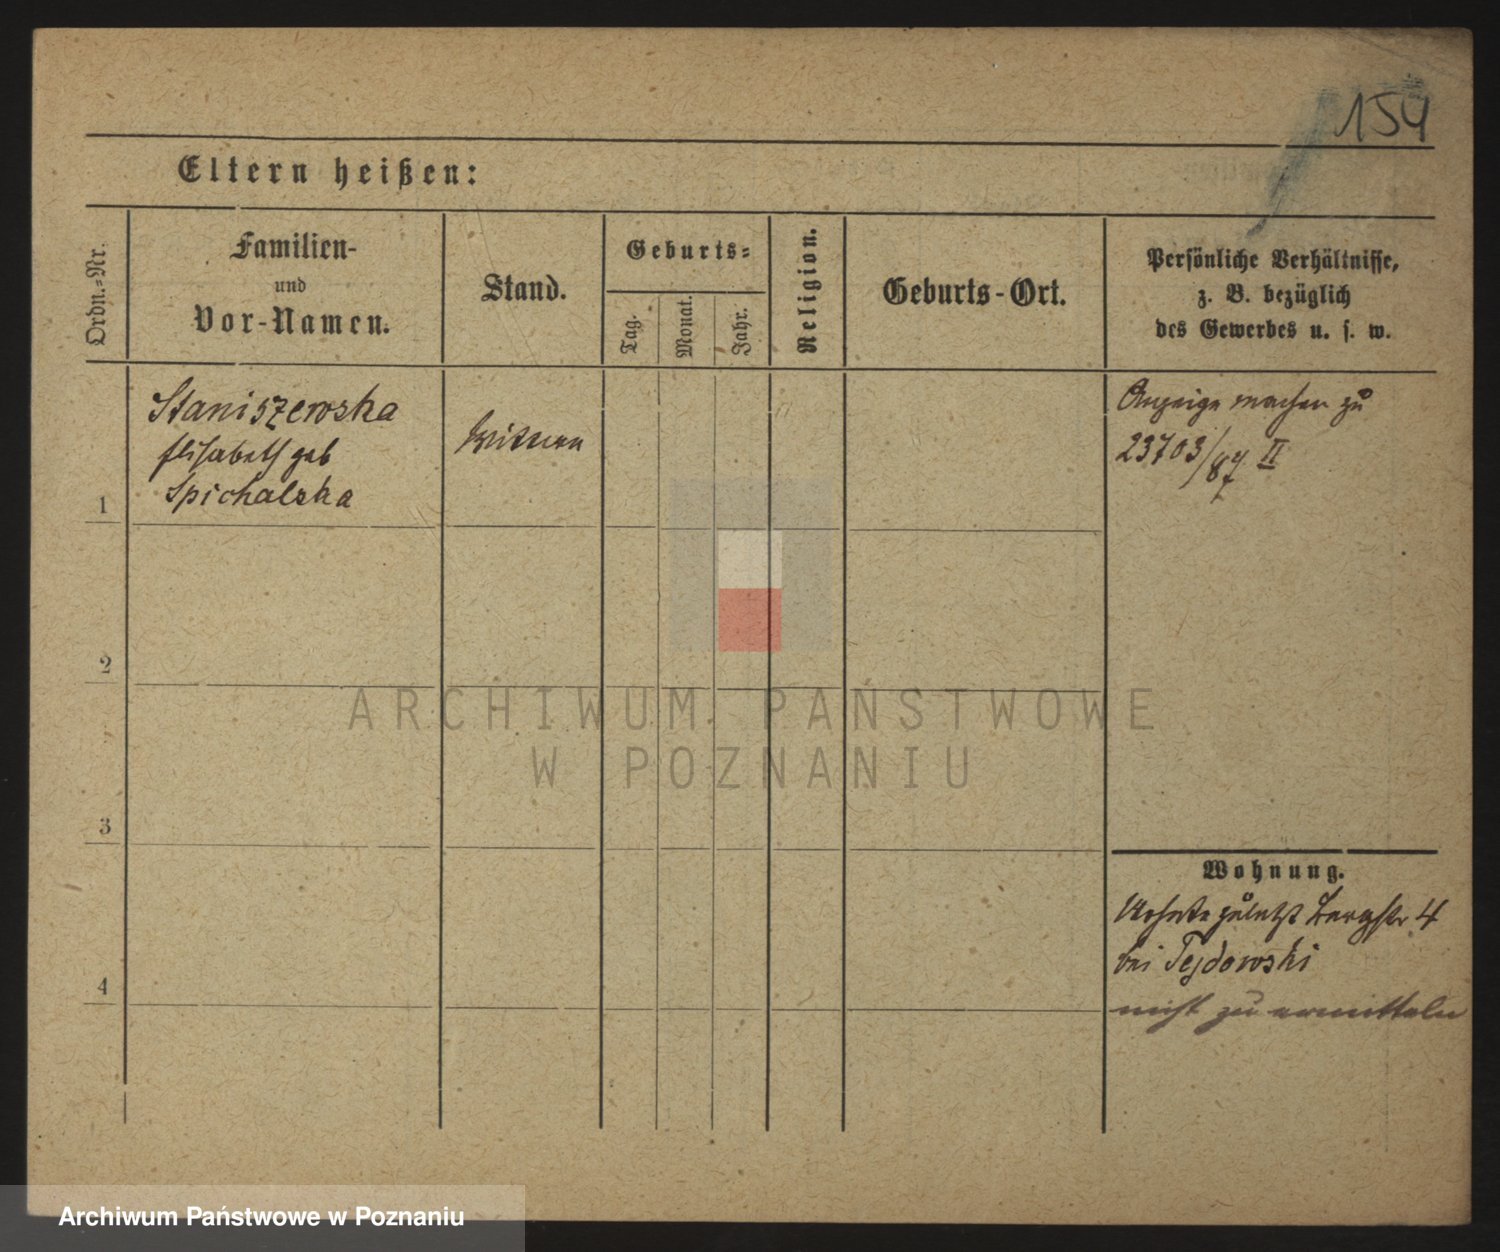 154
Eltern heißen:
Ordn.-Nr.
Familien-
und
Vor-Namen.
Stand.
Geburts-
Tag.
Monat.
Jahr.
Religion.
Geburts-Ort.
Persönliche Verhältnisse,
z. B. bezüglich
des Gewerbes u. s. w.
1
Staniszewska
Elisabeth geb
Spichalska
Wittwe
Anzeige machen zu
23703/87 II
2
3
4
Wohnung.
Wohnte zuletzt Bergstr 4
bei Tejdowski
nicht zu ermitteln
ARCHIWUM PAŃSTWOWE
W POZNANIU
Archiwum Państwowe w Poznaniu